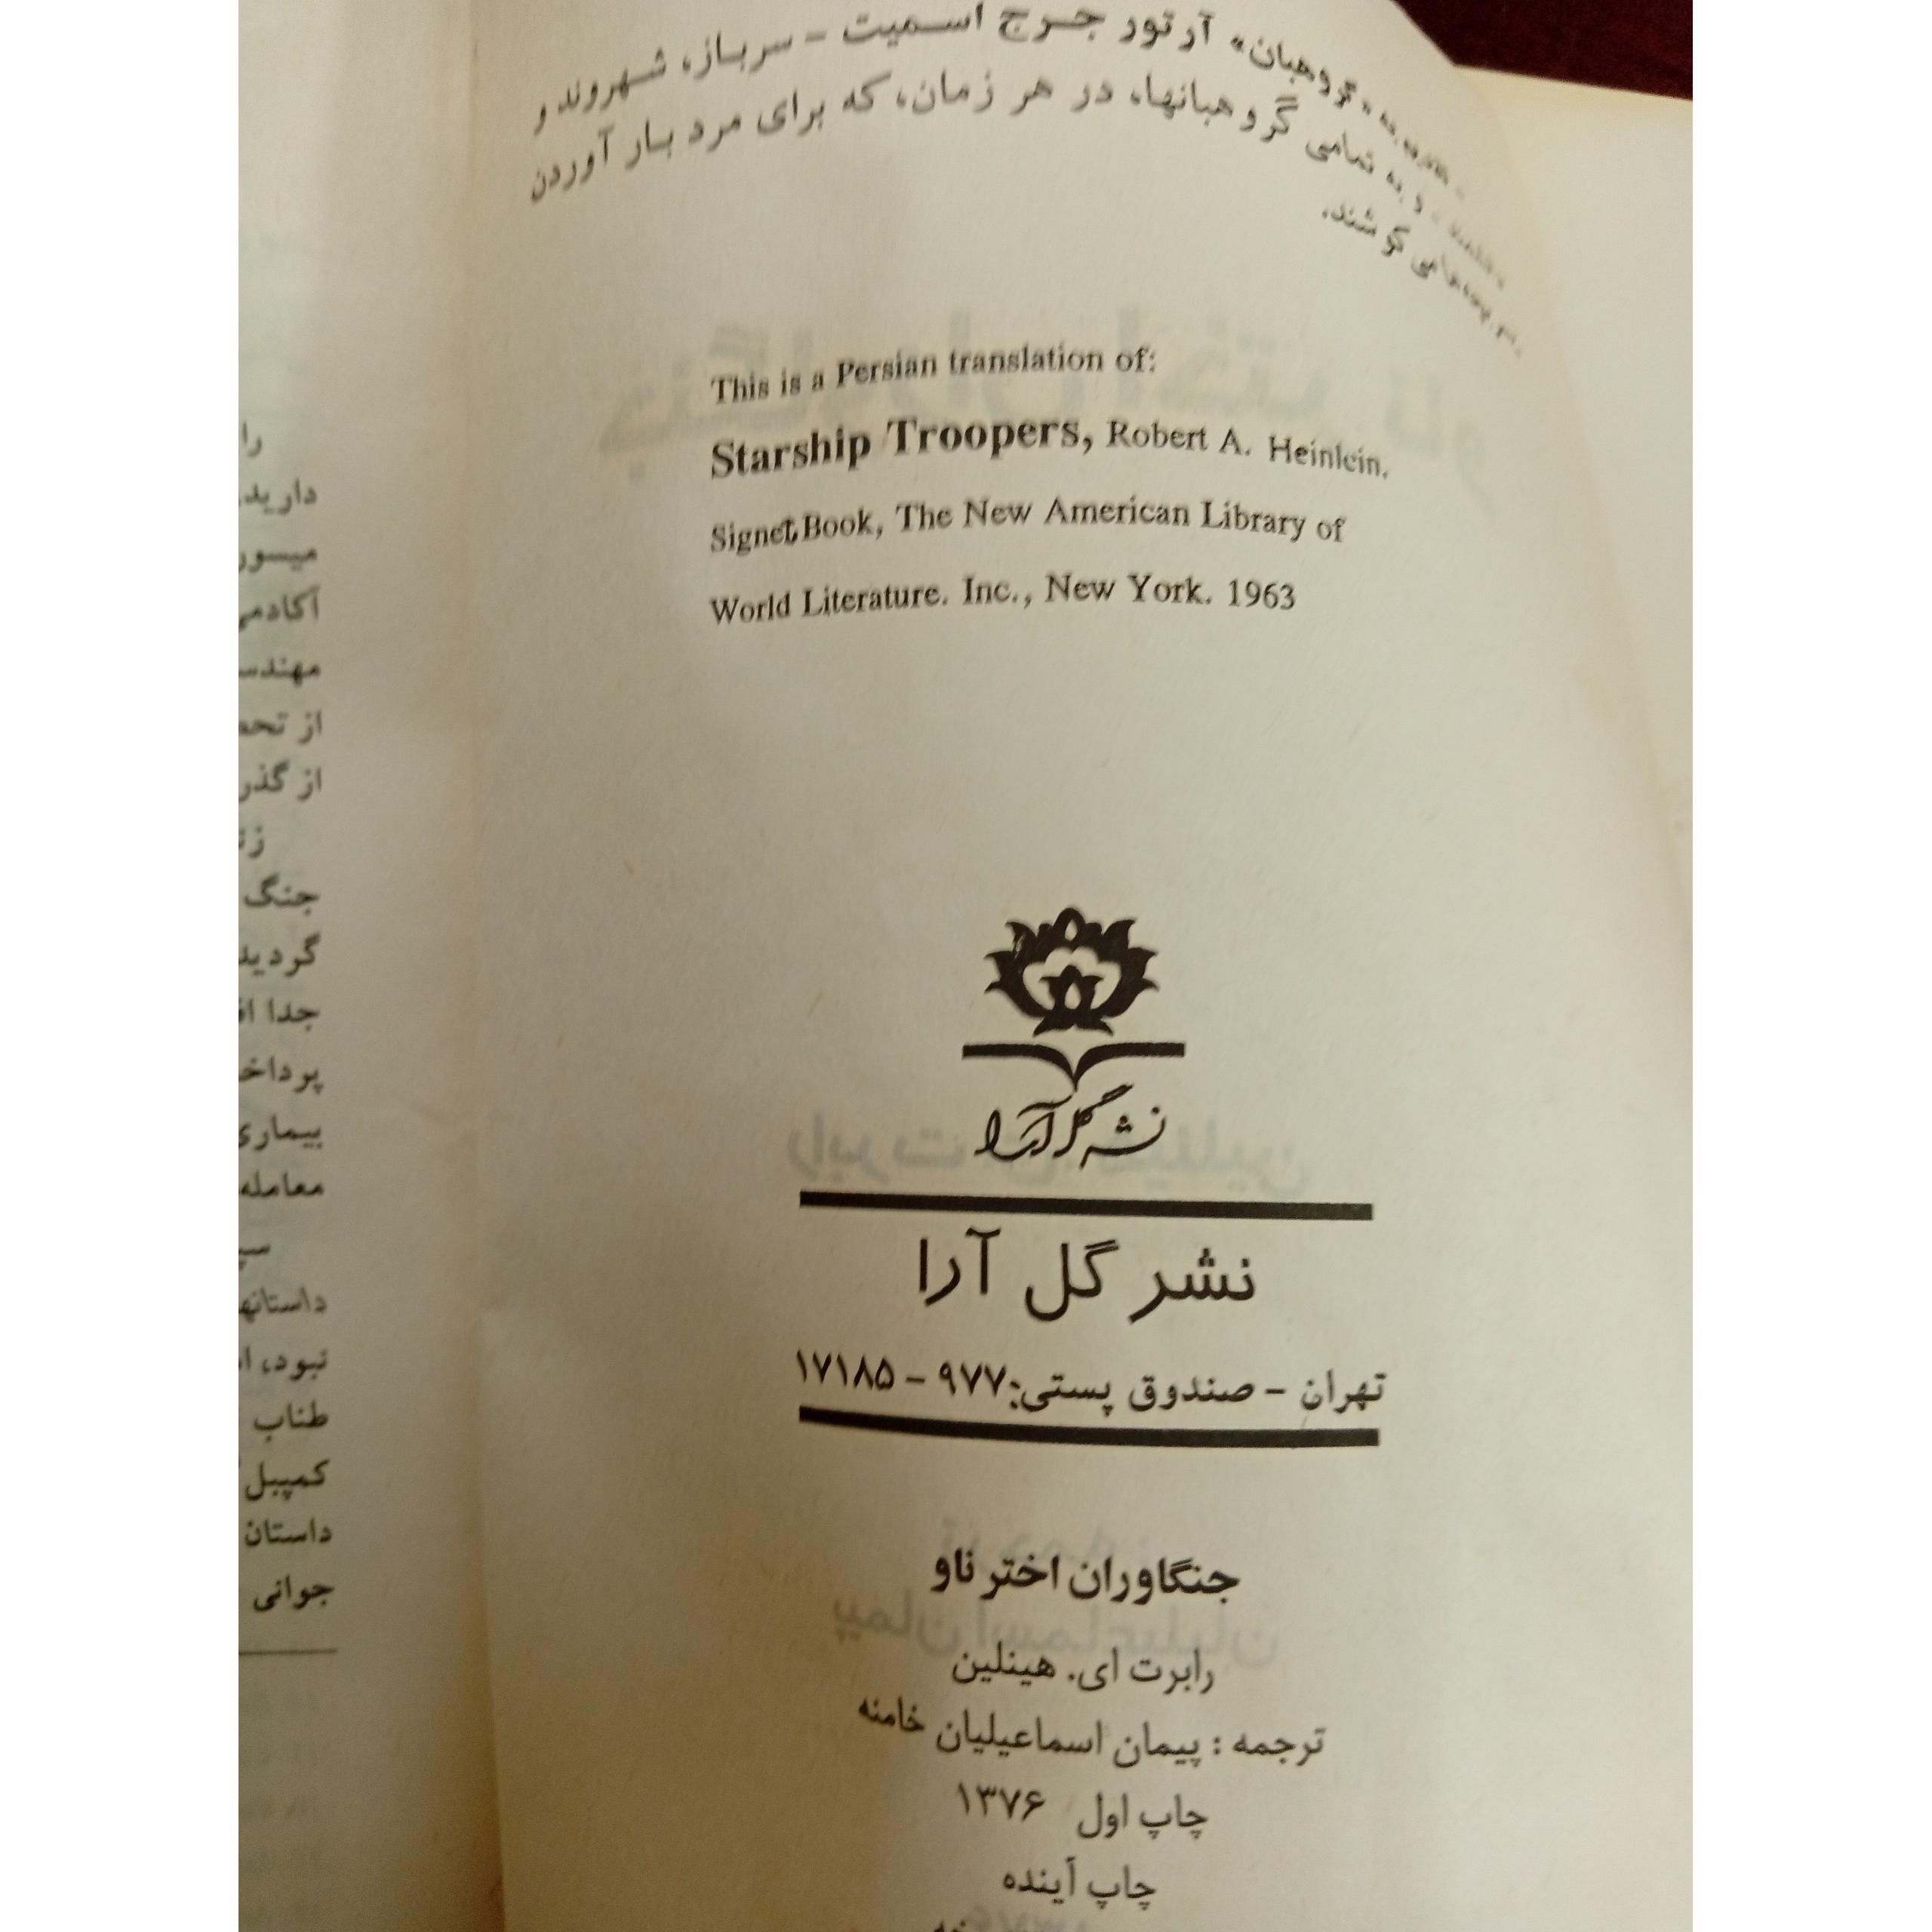 «گروهبان» آرتور جرج اسمیت – سرباز، شهروند و
و به تمامی گروهبانها، در هر زمان، که برای مرد بار آوردن
می کوشند.
This is a Persian translation of:
Starship Troopers, Robert A. Heinlein.
Signet Book, The New American Library of
World Literature. Inc., New York. 1963
نشر گل آرا
نشر گل آرا
تهران – صندوق پستی: ۹۷۷ – ۱۷۱۸۵
جنگاوران اختر ناو
رابرت ای. هینلین
ترجمه : پیمان اسماعیلیان خامنه
چاپ اول ۱۳۷۶
چاپ آینده
را
دارید
میسور
مهندس
از
از گذر
جنگ
گردید
جدا
بیماری
معامله
نبود،
طناب
کمپبل
داستان
جوانی